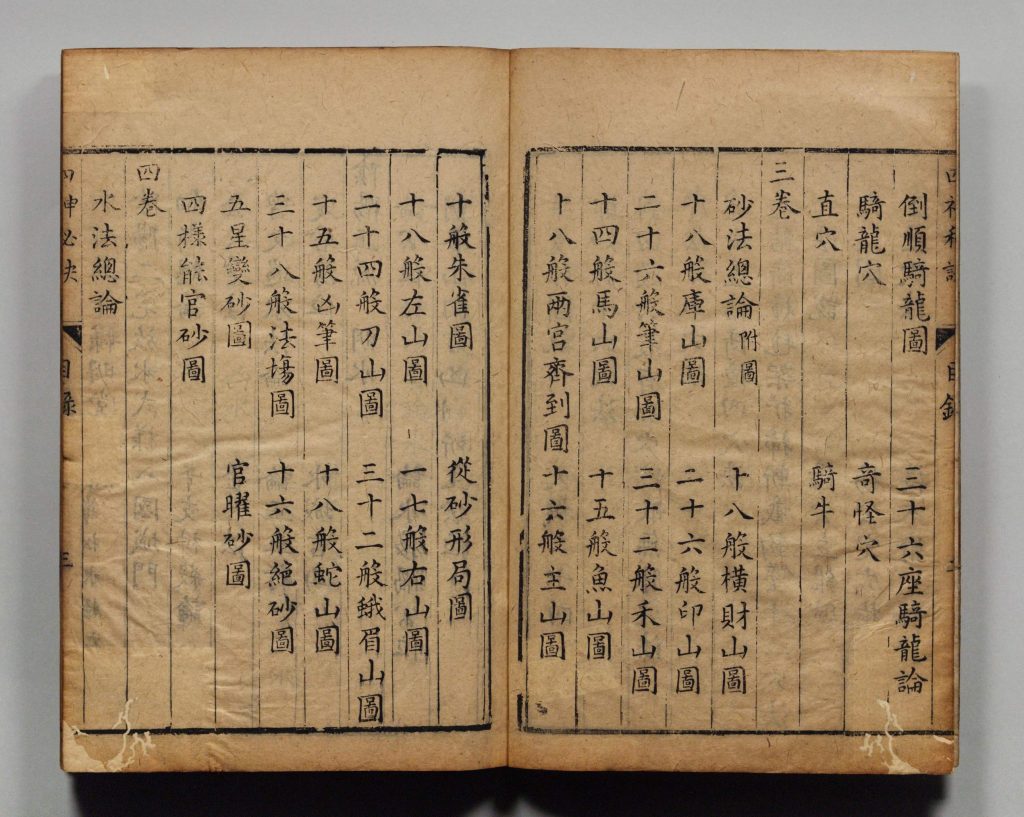 倒順騎龍圖 三十六座騎龍論
騎龍穴 竒怪穴
直穴 騎牛
三卷
砂法總論附圖 十八般橫財山圖
十八般庫山圖 二十六般印山圖
二十六般筆山圖 三十二般禾山圖
十四般馬山圖 十五般魚山圖
十八般兩宫齊到圖 十六般主山圖
十般朱雀圖 從砂形局圖
十八般左山圖 一七般右山圖
二十四般刀山圖 三十二般蛾眉山圖
十五般凶筆圖 十八般蛇山圖
三十八般法塲圖 十六般絕砂圖
五星變砂圖 官曜砂圖
四樣能官砂圖
四卷
水法總論
目錄 三